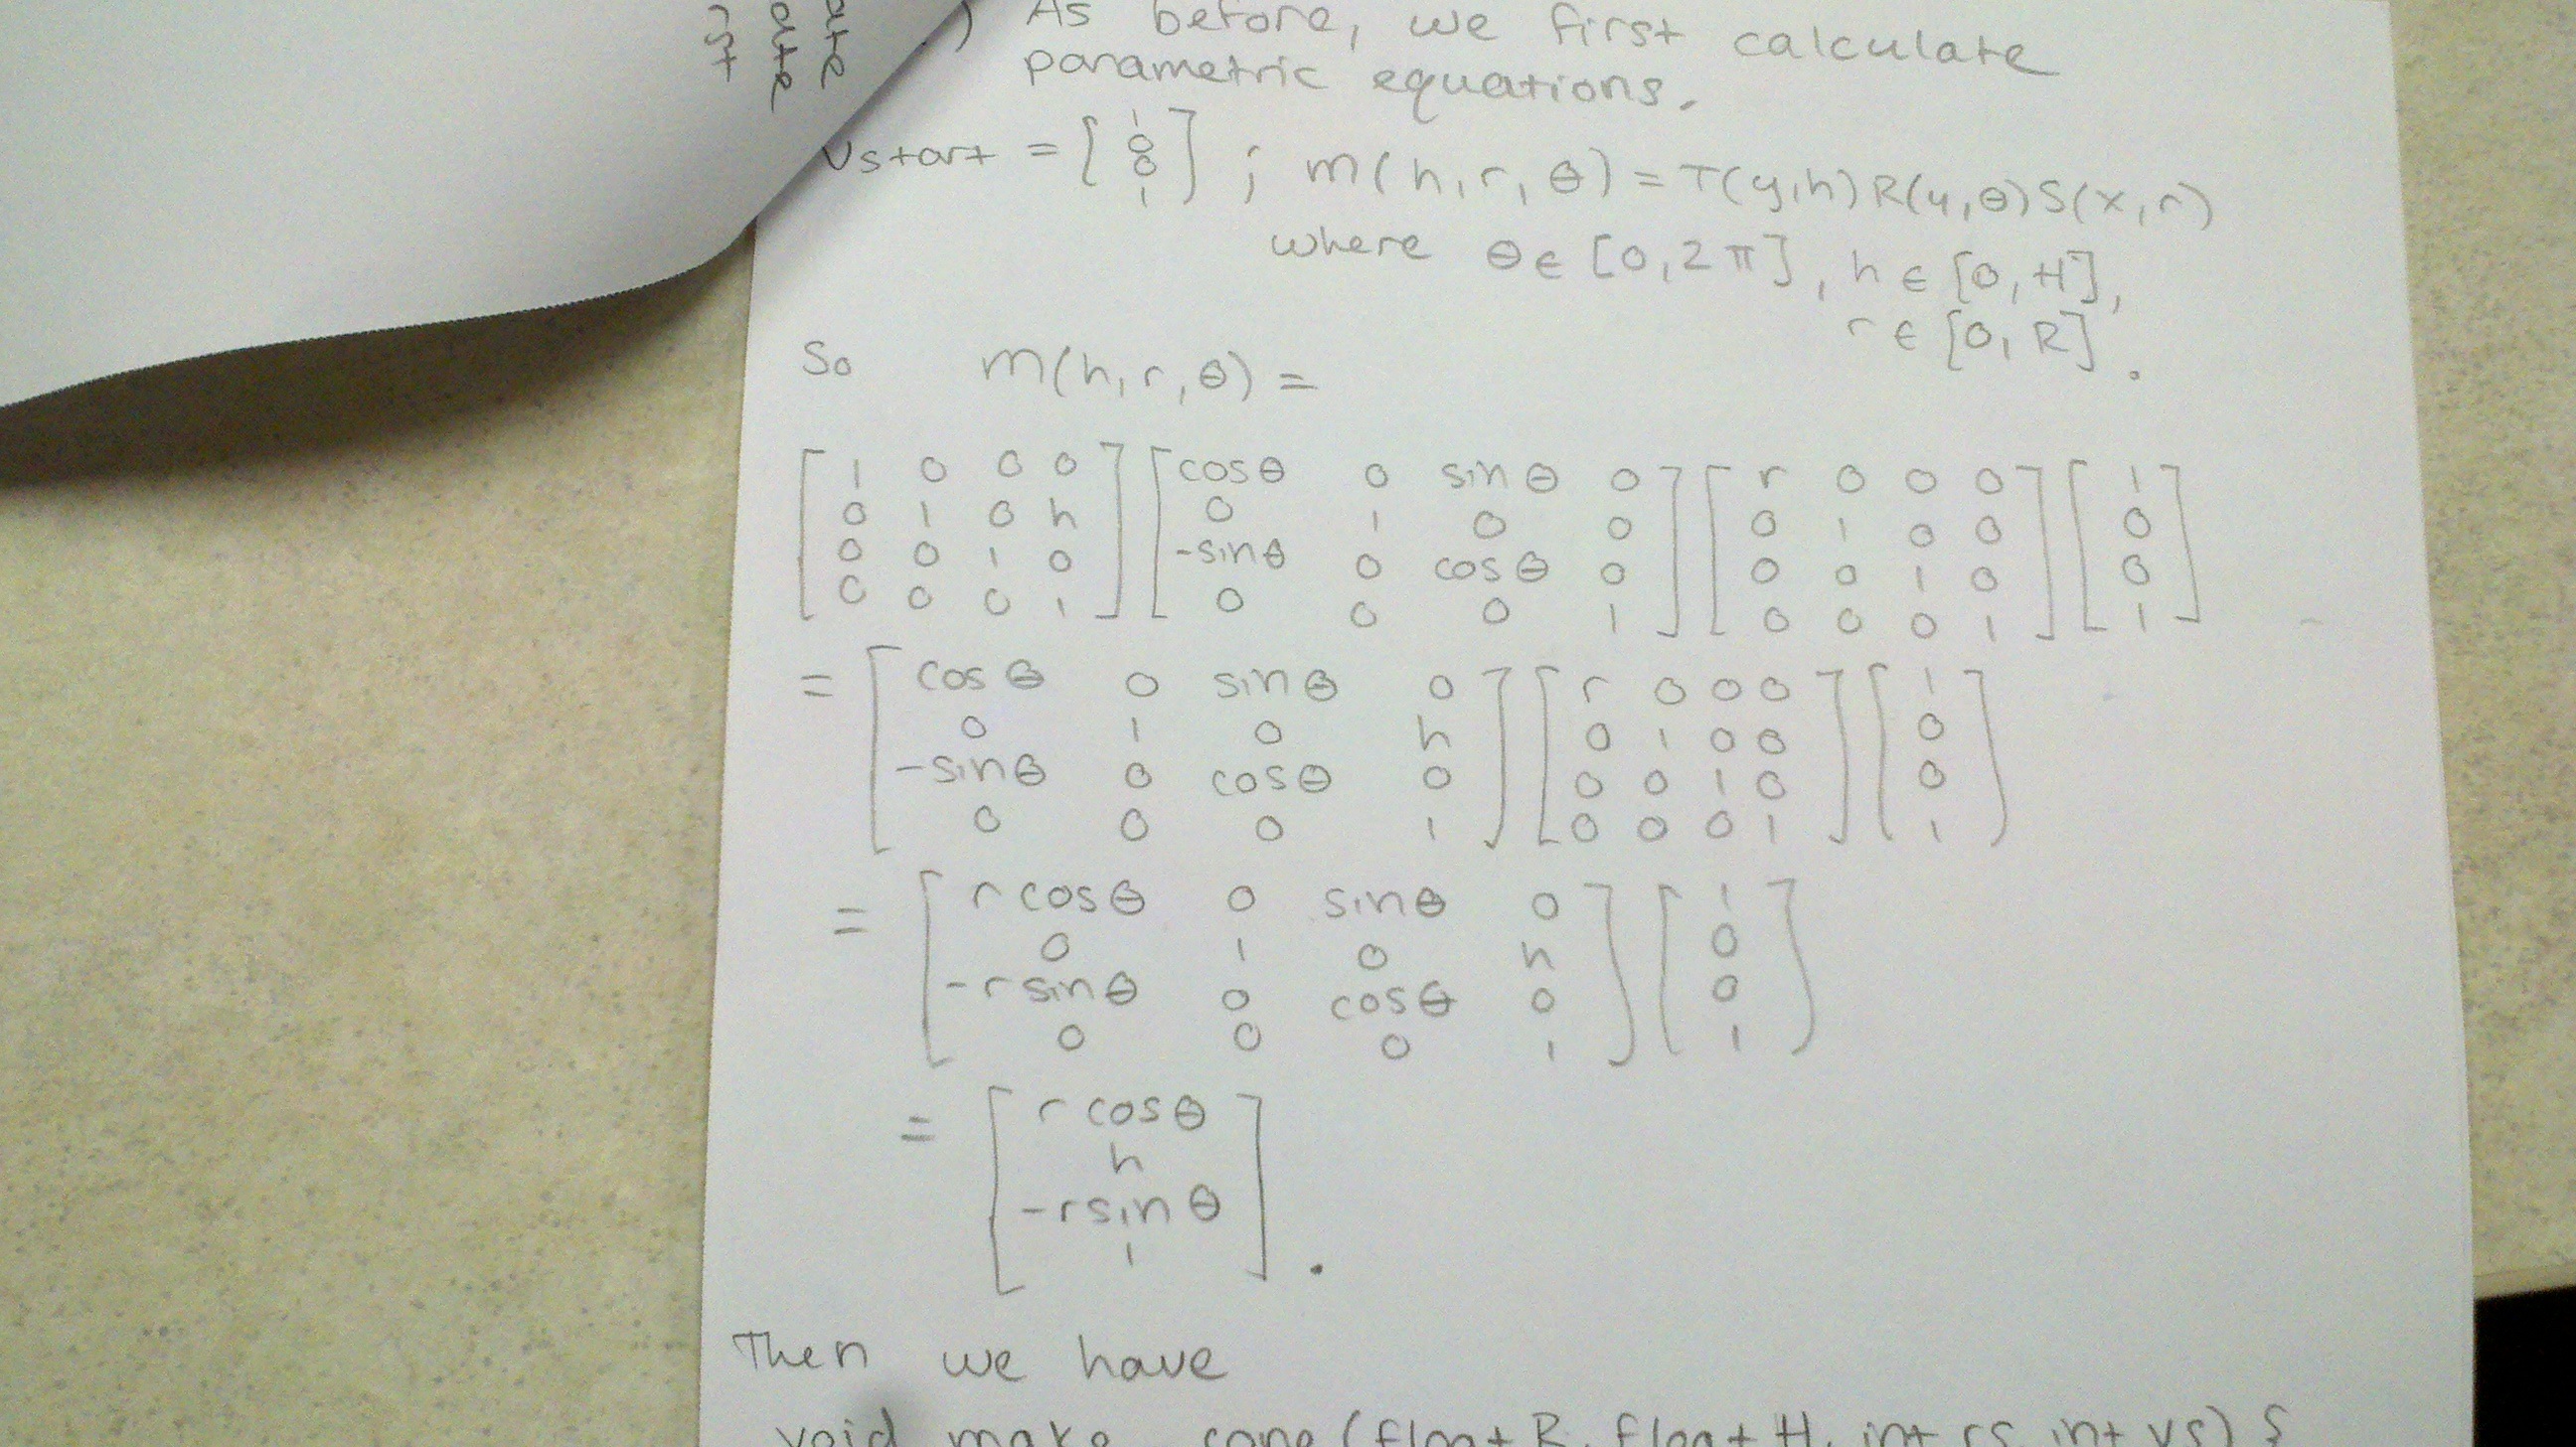 ate
ate
rst
.) As before, we first calculate
parametric equations.
vstart = [ 1 0 0 1 ] ; m(h,r,θ) = T(y,h) R(y,θ) S(x,r)
where θ ∈ [0, 2π], h ∈ [0, H],
r ∈ [0, R].
So m(h,r,θ) =
[ 1 0 0 0 ] [ cosθ 0 sinθ 0 ] [ r 0 0 0 ] [ 1 ]
[ 0 1 0 h ] [ 0 1 0 0 ] [ 0 1 0 0 ] [ 0 ]
[ 0 0 1 0 ] [ -sinθ 0 cosθ 0 ] [ 0 0 1 0 ] [ 0 ]
[ 0 0 0 1 ] [ 0 0 0 1 ] [ 0 0 0 1 ] [ 1 ]
= [ cosθ 0 sinθ 0 ] [ r 0 0 0 ] [ 1 ]
[ 0 1 0 h ] [ 0 1 0 0 ] [ 0 ]
[ -sinθ 0 cosθ 0 ] [ 0 0 1 0 ] [ 0 ]
[ 0 0 0 1 ] [ 0 0 0 1 ] [ 1 ]
= [ r cosθ 0 sinθ 0 ] [ 1 ]
[ 0 1 0 h ] [ 0 ]
[ -r sinθ 0 cosθ 0 ] [ 0 ]
[ 0 0 0 1 ] [ 1 ]
= [ r cosθ ]
[ h ]
[ -r sinθ ]
[ 1 ] .
Then we have
void make_cone (float R, float H, int rs, int vs) {